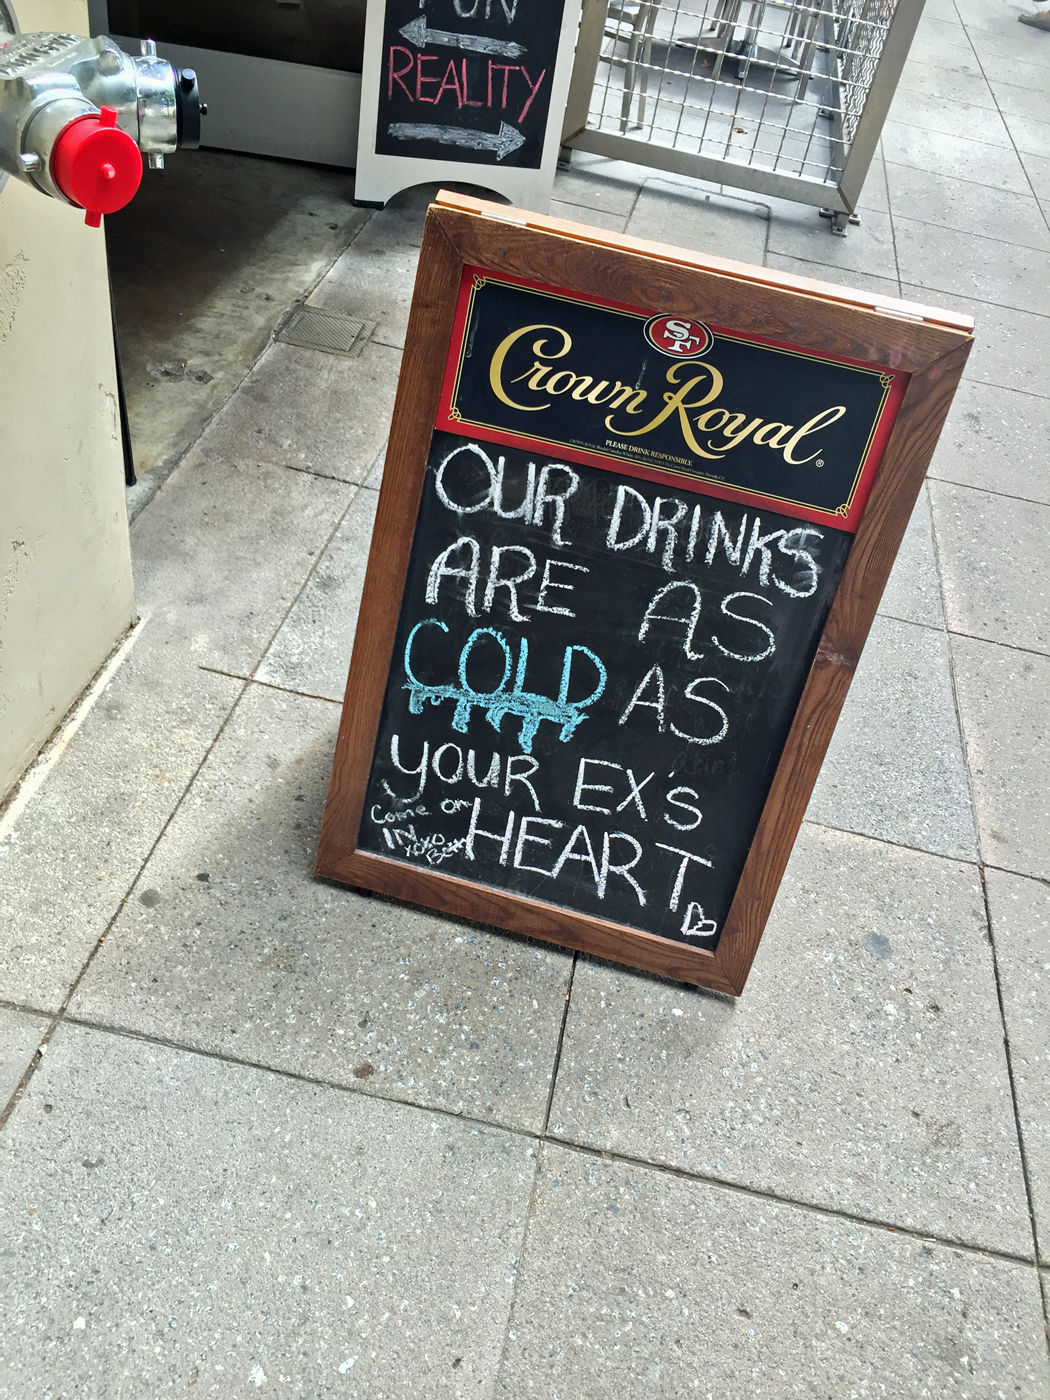 FUN
REALITY
SF
Crown Royal®
PLEASE DRINK RESPONSIBLY.
OUR DRINKS
ARE AS
COLD AS
YOUR EX'S
HEART
Come on
IN
XOXO